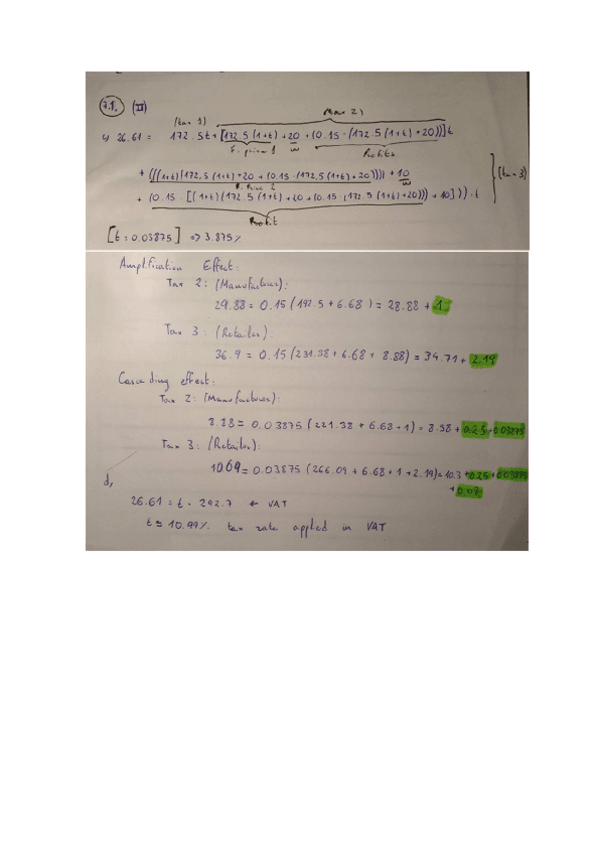 7.1. (II)
(tax 1) (Tax 2)
c) 26.61 = 172.5t + [172.5(1+t) + 20 + (0.15 · (172.5(1+t) + 20))]t
S. price 1 w Profits
+ (((1+t)(172.5(1+t) + 20 + (0.15 · 172.5(1+t) + 20)))) + 10
S. Price 2 w (tax 3)
+ (0.15 · [((1+t)(172.5(1+t) + 20 + (0.15 · (172.5(1+t) + 20))) + 10])) · t
Profit
[t = 0.03875] => 3.875%
Amplification Effect:
Tax 2: (Manufacturer):
29.88 = 0.15(192.5 + 6.68) = 28.88 + 1
Tax 3: (Retailer):
36.9 = 0.15(231.38 + 6.68 + 8.88) = 34.71 + 2.19
Cascading effect:
Tax 2: (Manufacturer):
8.88 = 0.03875(221.38 + 6.68 + 1) = 8.58 + 0.25 + 0.03875
Tax 3: (Retailer):
10.69 = 0.03875(266.09 + 6.68 + 1 + 2.19) = 10.3 + 0.25 + 0.03875
+ 0.07
d,
26.61 = t · 242.7 ← VAT
t ≈ 10.97% tax rate applied in VAT